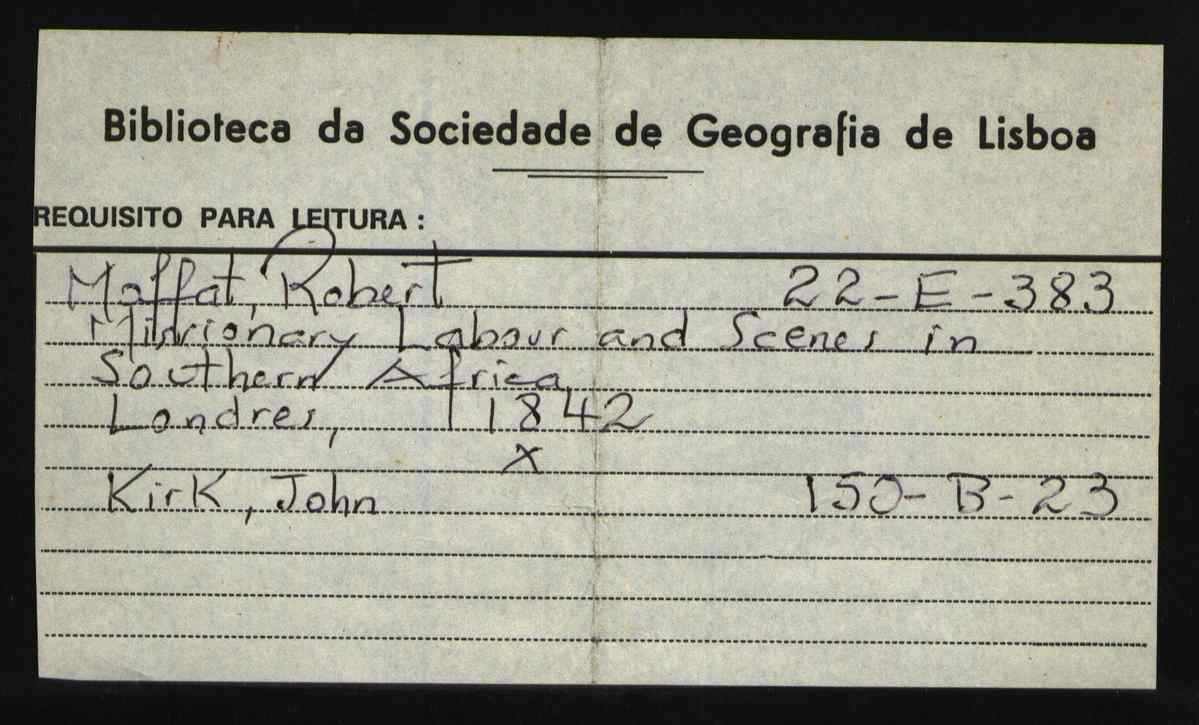 Biblioteca da Sociedade de Geografia de Lisboa
REQUISITO PARA LEITURA :
Moffat, Robert 22-E-383
Missionary Labour and Scenes in
Southern Africa
Londres, 1842
x
Kirk, John 150-B-23